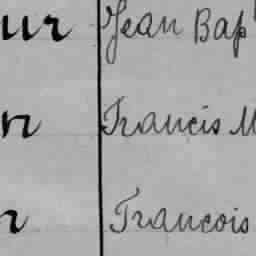 ur Jean Bap
n Francis M
n Francois